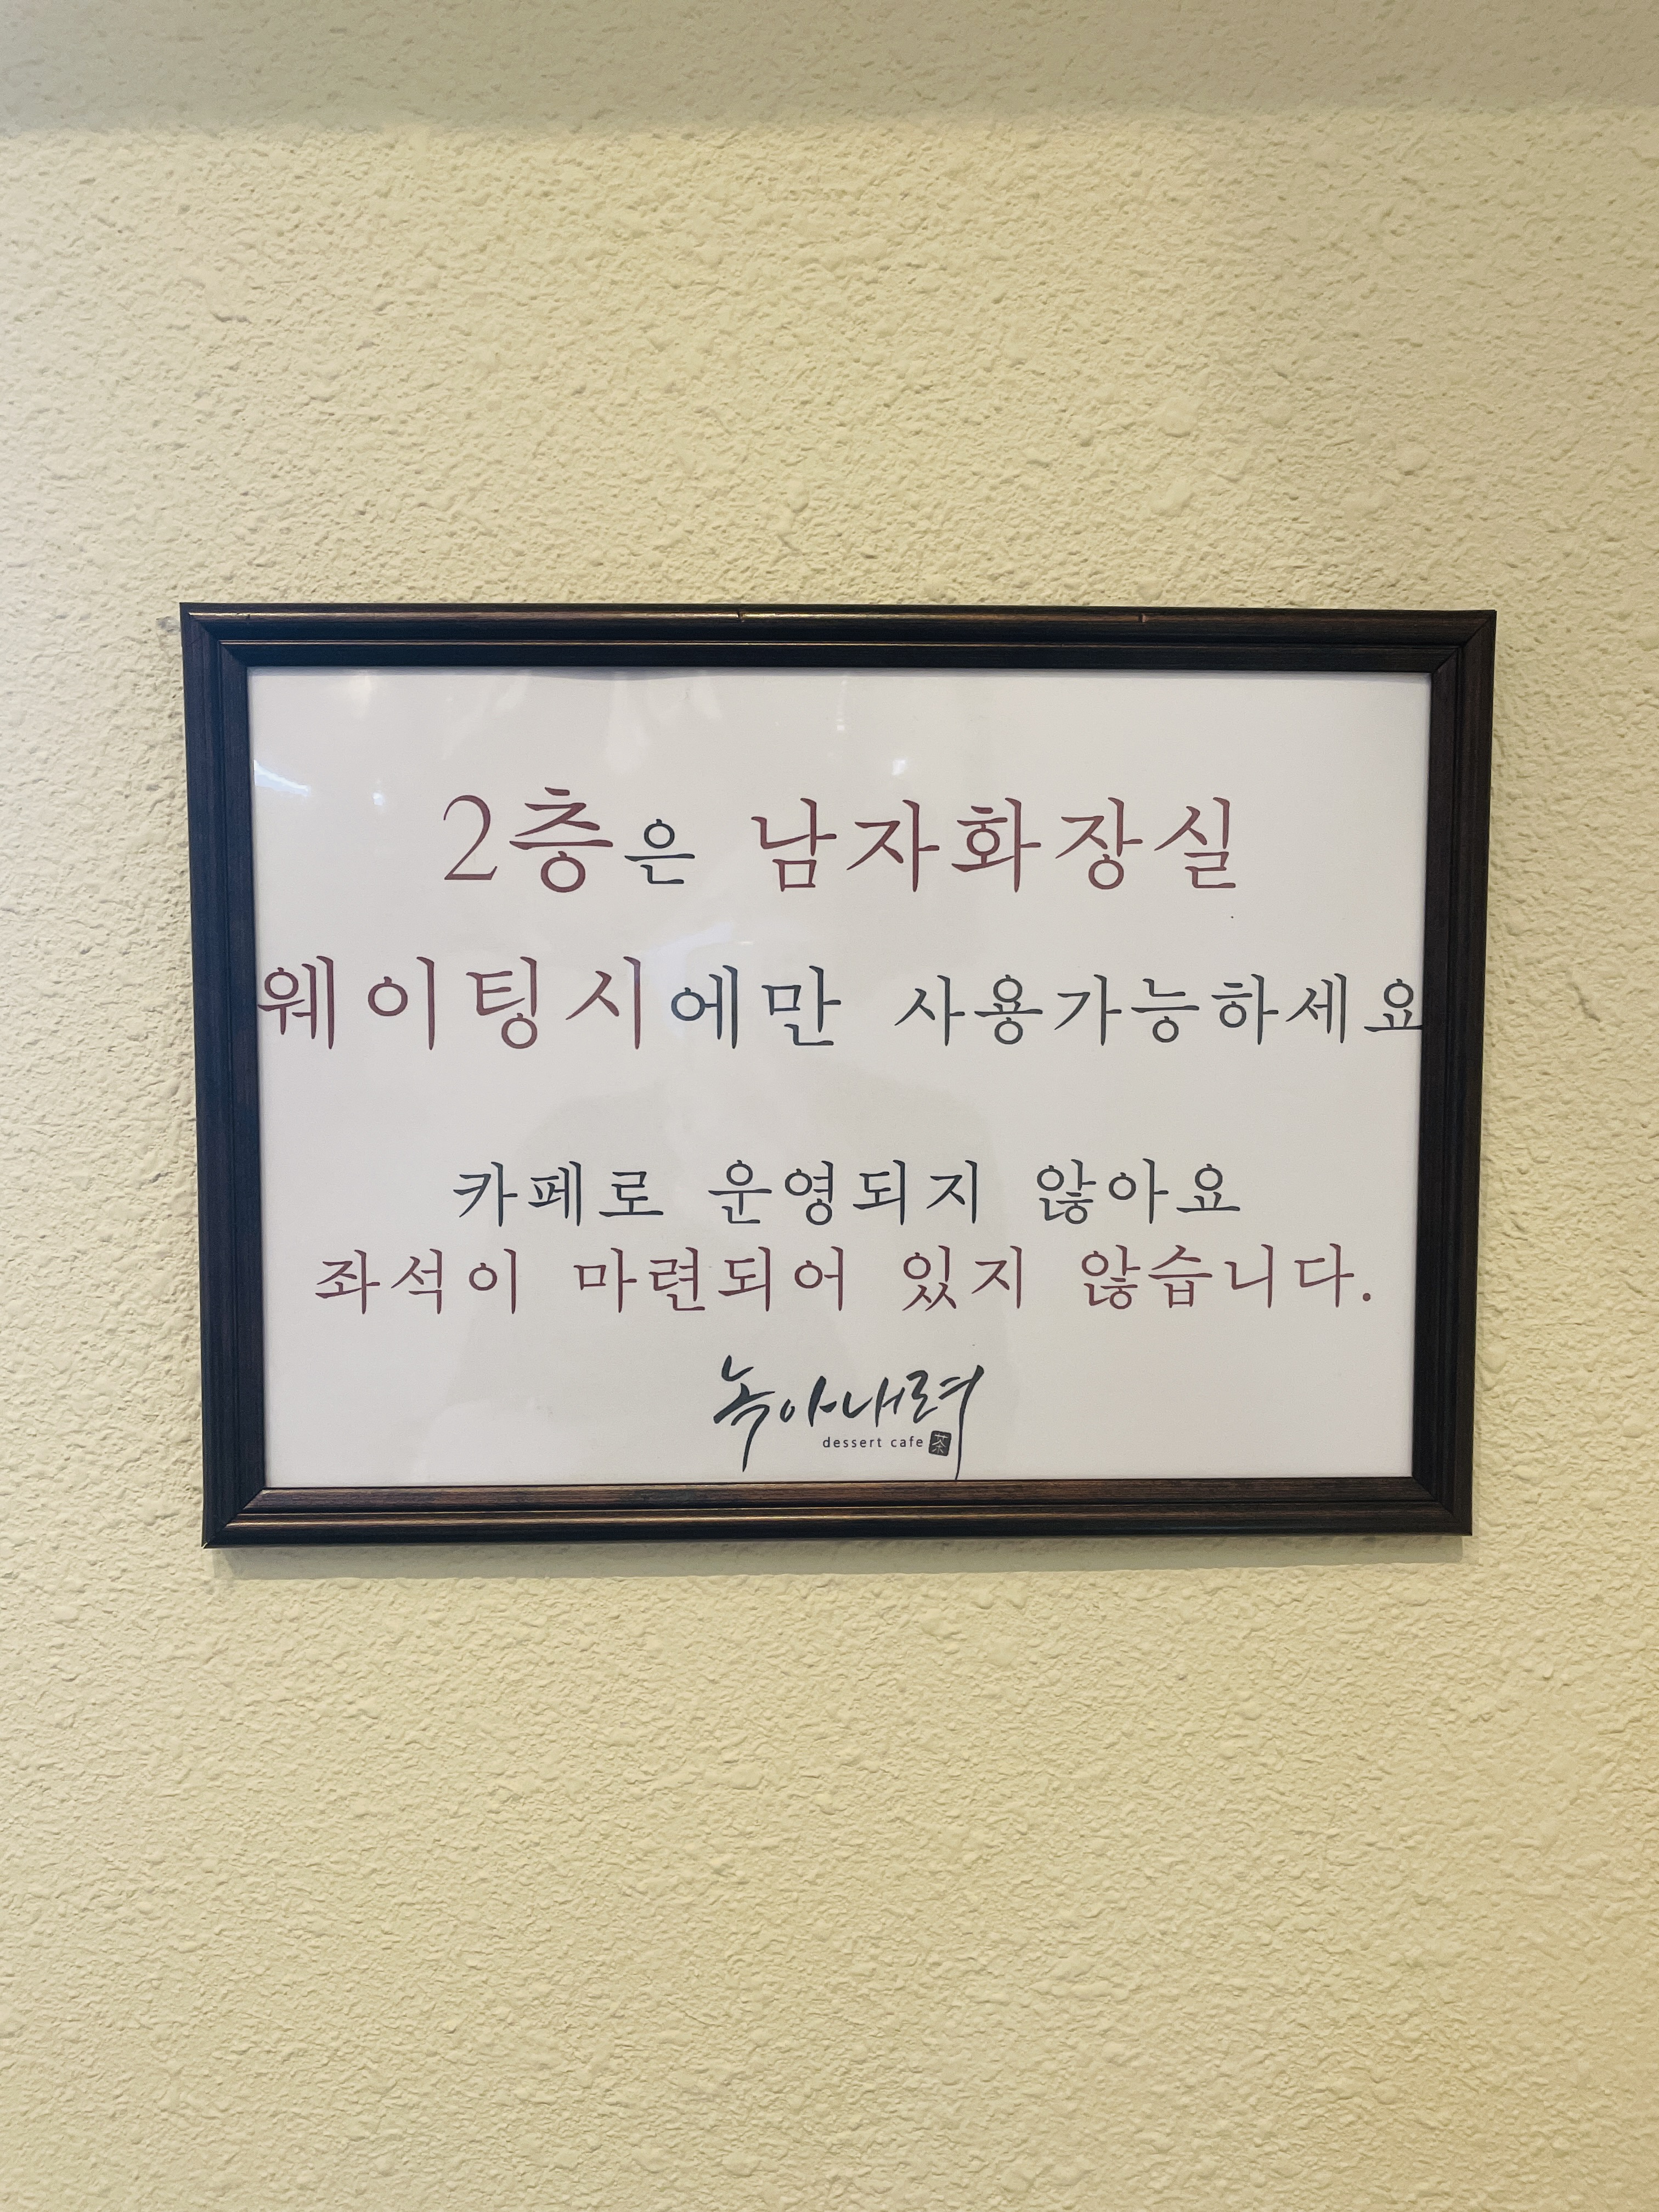 2층은 남자화장실
웨이팅시에만 사용가능하세요
카페로 운영되지 않아요
좌석이 마련되어 있지 않습니다.
녹아내려
dessert cafe 茶